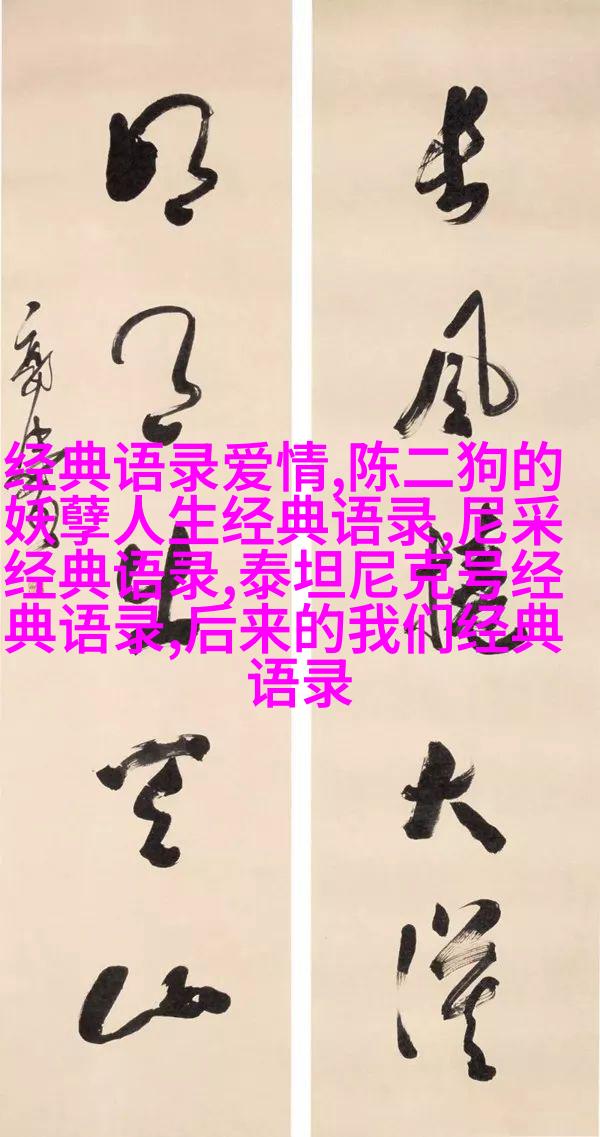 长风
大漠
明月出天山
经典语录爱情,陈二狗的
妖孽人生经典语录,尼采
经典语录,泰坦尼克号经
典语录,后来的我们经典
语录